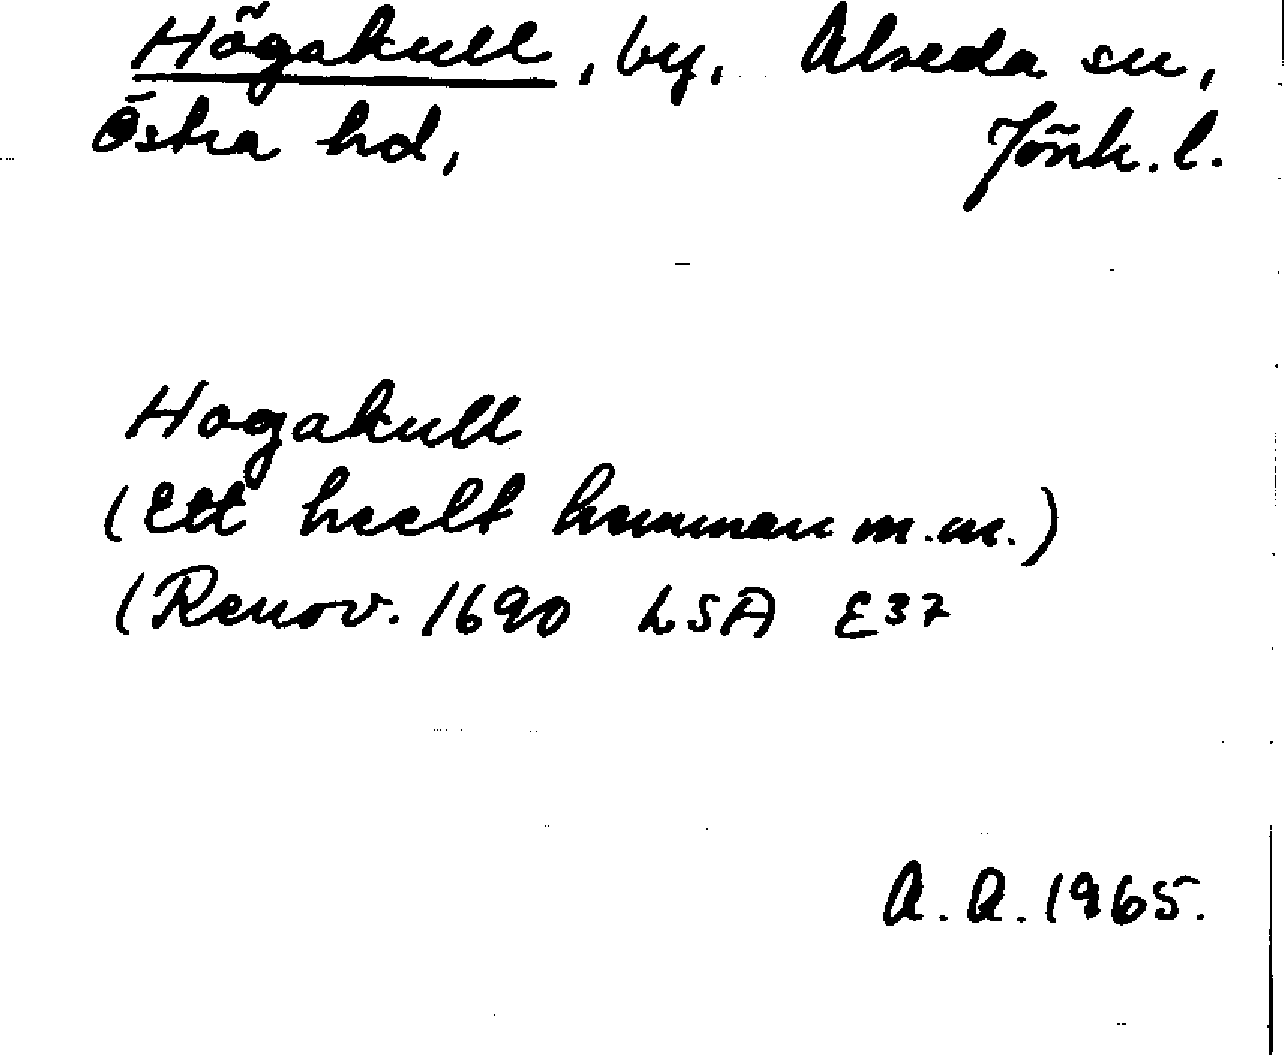 Högakull, by, Alseda sn,
Östra hd, Jönk. l.
Hogakull
(Ett heelt hemman m.m.)
(Renov. 1690 LSA E37
A.A. 1965.